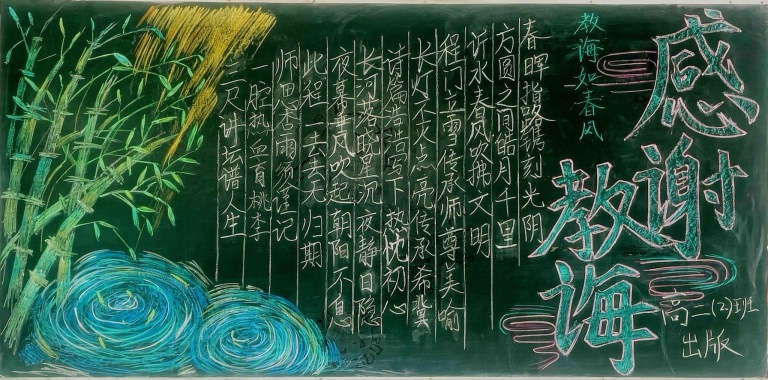 感谢
教诲
教海如春风
春晖指路镌刻光阴
方圆之间皓月千里
沂水春风吹拂文明
程门立雪传承师尊美喻
长灯不灭点亮传承希冀
诗篇写下热忱初心
长河落晓星沉夜静日隐
夜幕垂风吹起朝阳不息
此程一去去无归期
师恩雨须谨记
一腔热血育桃李
三尺讲坛谱人生
高二(2)班
出版